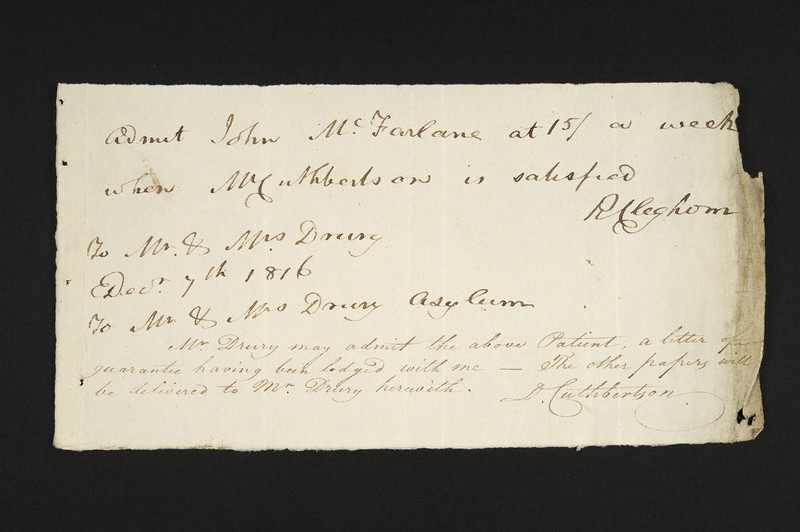 Admit John Mc Farlane at 15/ a week
when Mr Cuthbertson is satisfied
R Cleghorn
To Mr. & Mrs Drury
Decr. 7th 1816
To Mr & Mrs Drury Asylum
Mr. Drury may admit the above Patient, a letter of
guarantee having been lodged with me — The other papers will
be delivered to Mr. Drury herewith.
D. Cuthbertson